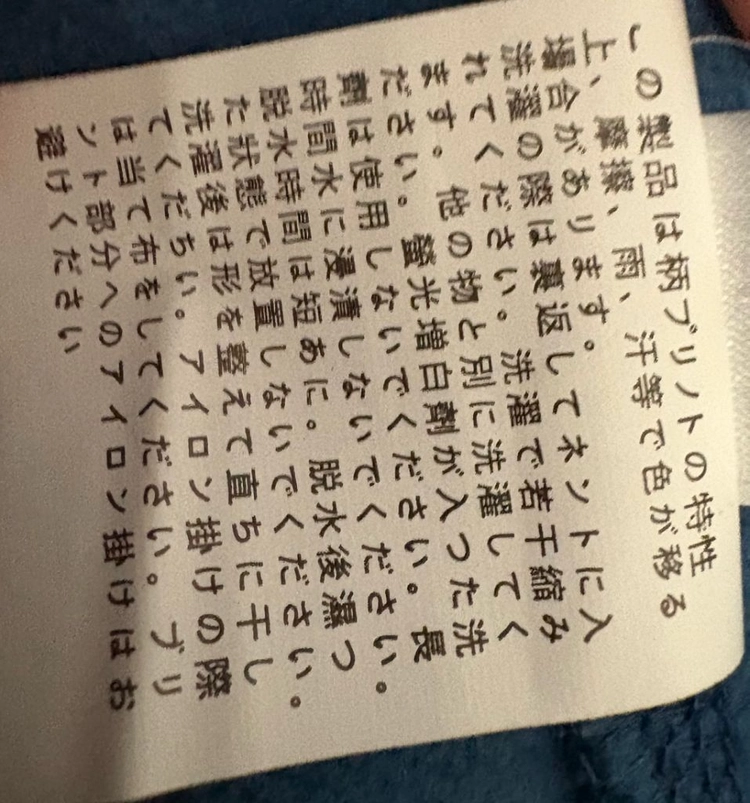 この製品は柄プリノトの特性
上、摩擦、雨、汗等で色が移る
場合があります。
洗濯の際は裏返してネントに入
れてください。洗濯で若干縮み
ます。他の物と別に洗濯してく
ださい。螢光増白剤が入った洗
剤は使用しないでください。長
時間水に浸漬しないでください。
脱水時間は短あに。脱水後濕つ
た状態で放置しないでください。
洗濯後は形を整えて直ちに干し
てくだちい。アイロン掛けの際
は当て布をしてください。ブリ
ント部分へのアイロン掛けはお
避けください